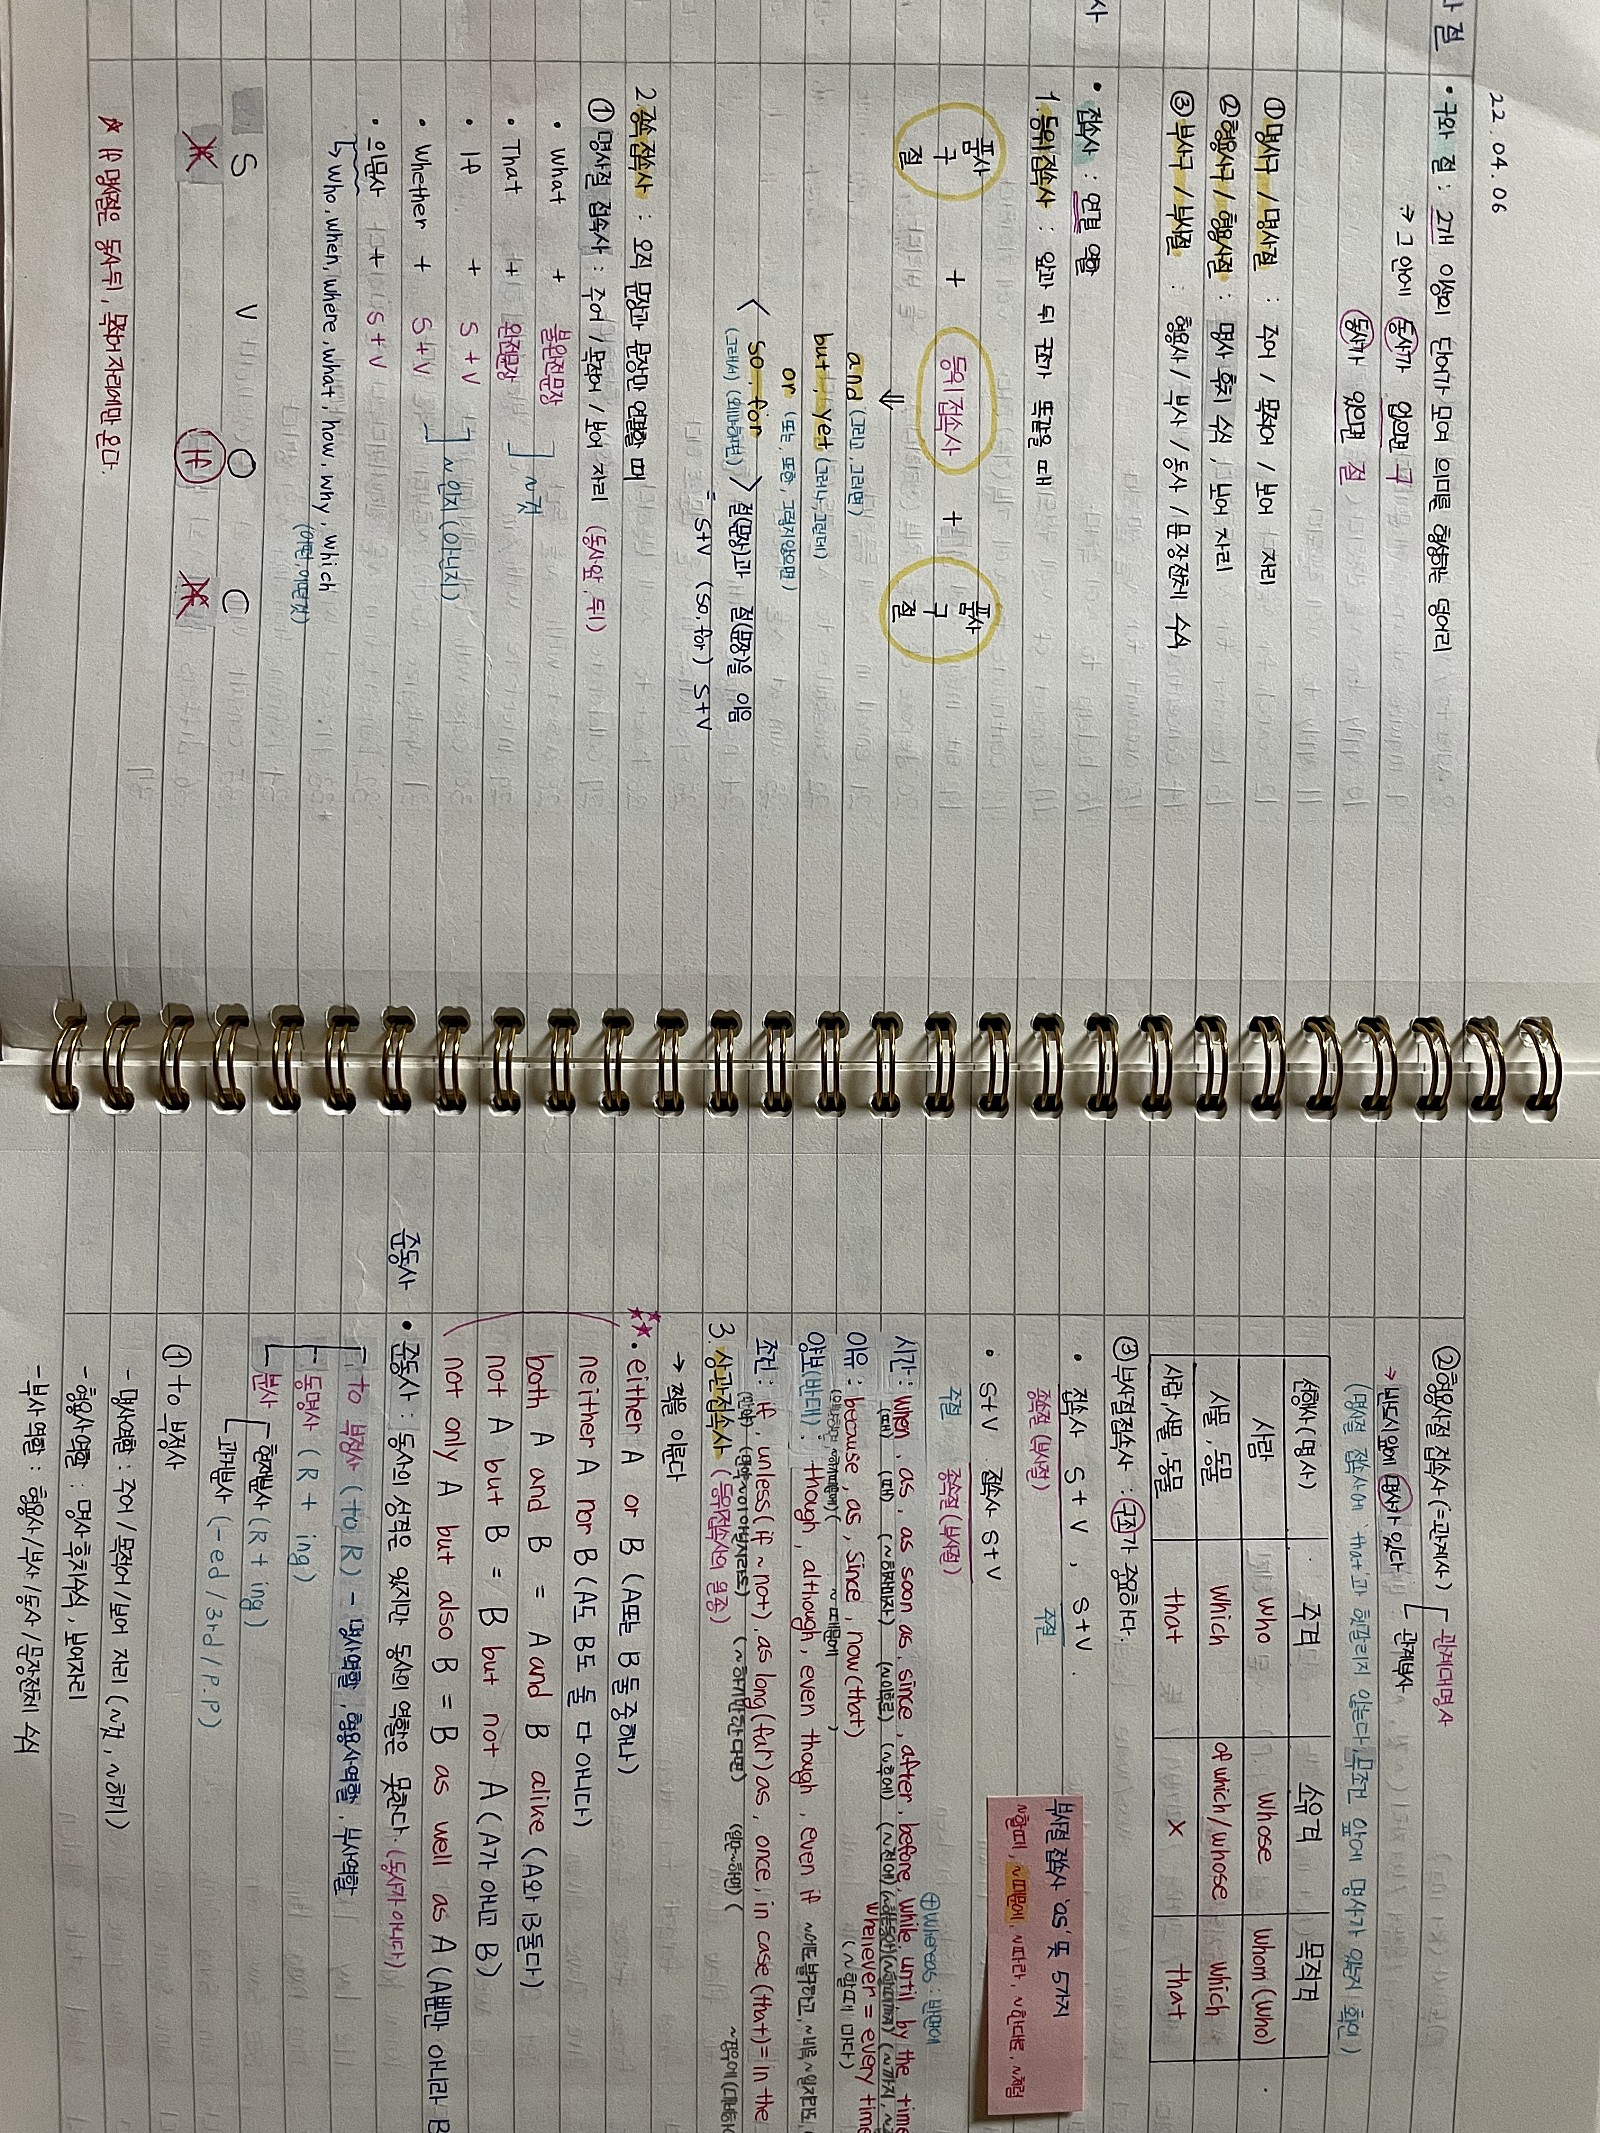 22.04.06
사 절
• 구와 절 : 2개 이상의 단어가 모여 의미를 형성하는 덩어리
→ 그 안에 동사가 없으면 구
동사가 있으면 절
① 명사구 / 명사절 : 주어 / 목적어 / 보어 자리
② 형용사구 / 형용사절 : 명사 후치 수식, 보어 자리
③ 부사구 / 부사절 : 형용사 / 부사 / 동사 / 문장전체 수식
사
• 접속사 : 연결 역할
1. 등위접속사 : 앞과 뒤 구조가 똑같을 때
품사 품사
구 + 등위접속사 + 구
절 절
⇓
and (그리고, 그러면)
but, yet (그러나, 그런데)
or (또는, 또한, 그렇지않으면)
< so, for > 절(문장)과 절(문장)을 이음
(그래서) (왜냐하면)
= S+V (so, for) S+V
2. 종속접속사 : 오직 문장과 문장만 연결할 때
① 명사절 접속사 : 주어 / 목적어 / 보어 자리 (동사앞, 뒤)
• What + 불완전문장
• That + 완전문장 ] ~것
• If + S+V
• Whether + S+V ] ~인지 (아닌지)
• 의문사 + S+V
↳ Who, when, where, what, how, why, which
(어떤, 어떤것)
S V O C
If If
☆ If 명사절은 동사 뒤, 목적어자리에만 온다.
② 형용사절 접속사 (=관계사) 관계대명사
→ 반드시 앞에 명사가 있다 관계부사
(명사절 접속사에 'that'과 헷갈리지 않는다. 무조건 앞에 명사가 있는지 확인)
선행사 (명사) 주격 소유격 목적격
사람 Who Whose Whom (who)
사물, 동물 Which of which/whose Which
사람/사물, 동물 that X that
③ 부사절접속사 : 구조가 중요하다.
• 접속사 S + V , S+V.
종속절 (부사절) 주절
• S+V 접속사 S+V
주절 종속절 (부사절)
부사절 접속사 'as' 뜻 5가지
~할때, ~때문에, ~따라, ~한대로, ~처럼
⊕ Whereas : 반면에
시간 : When, as, as soon as, since, after, before, while, until, by the time
(때) (때) (~하자마자) (~이후로) (~후에) (~전에)
Whenever = every time
(~할때 마다)
이유 : because, as, since, now (that)
~때문에
양보(반대) : though, although, even though, even if
조건 : If, unless (if ~ not), as long (far) as, once, in case (that) = in the
(만약) (만약 ~이 아닐지라도) (~하기만 한다면) (일단 ~하면)
3. 상관접속사 (등위접속사의 일종)
→ 짝을 이룬다
• either A or B (A또는 B 둘 중 하나)
neither A nor B (A도 B도 둘 다 아니다)
both A and B = A and B alike (A와 B 둘다)
not A but B = B but not A (A가 아니고 B)
not only A but also B = B as well as A (A뿐만 아니라 B
준동사
• 준동사 : 동사의 성격은 있지만 동사의 역할은 못한다. (동사가 아니다)
to 부정사 (to R) - 명사역할, 형용사역할, 부사역할
동명사 (R + ing)
분사 현재분사 (R + ing)
과거분사 (-ed / 3rd / P.P)
① to 부정사
- 명사역할 : 주어 / 목적어 / 보어 자리 (~것, ~하기)
- 형용사역할 : 명사 후치수식, 보어자리
- 부사역할 : 형용사 / 부사 / 동사 / 문장전체 수식